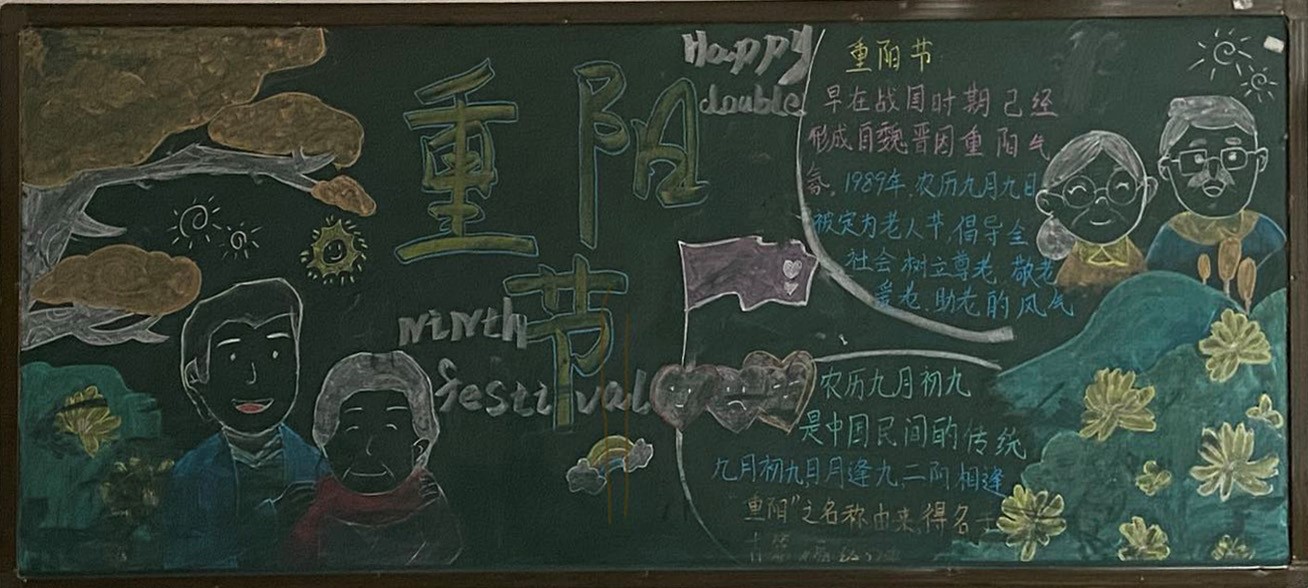 重阳节
Happy
double
Ninth
festival
重阳节
早在战国时期已经
形成自魏晋因重阳气
氛。1989年,农历九月九日
被定为老人节,倡导全
社会树立尊老,敬老
爱老,助老的风气
农历九月初九
是中国民间的传统
九月初九日月逢九二阳相逢
"重阳"之名称由来,得名于